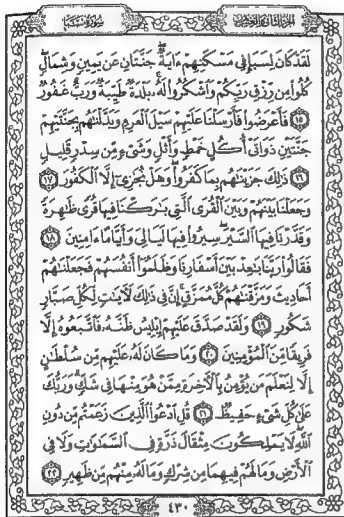 الجزء الثاني والعشرون سورة سبإ
لَقَدْ كَانَ لِسَبَإٍ فِي مَسْكَنِهِمْ ءَايَةٌ جَنَّتَانِ عَن يَمِينٍ وَشِمَالٍ
كُلُوا۟ مِن رِّزْقِ رَبِّكُمْ وَٱشْكُرُوا۟ لَهُۥ بَلْدَةٌ طَيِّبَةٌ وَرَبٌّ غَفُورٌ
١٥ فَأَعْرَضُوا۟ فَأَرْسَلْنَا عَلَيْهِمْ سَيْلَ ٱلْعَرِمِ وَبَدَّلْنَٰهُم بِجَنَّتَيْهِمْ
جَنَّتَيْنِ ذَوَاتَىْ أُكُلٍ خَمْطٍ وَأَثْلٍ وَشَىْءٍ مِّن سِدْرٍ قَلِيلٍ
١٦ ذَٰلِكَ جَزَيْنَٰهُم بِمَا كَفَرُوا۟ وَهَلْ نُجَٰزِىٓ إِلَّا ٱلْكَفُورَ ١٧
وَجَعَلْنَا بَيْنَهُمْ وَبَيْنَ ٱلْقُرَى ٱلَّتِى بَٰرَكْنَا فِيهَا قُرًى ظَٰهِرَةً
وَقَدَّرْنَا فِيهَا ٱلسَّيْرَ سِيرُوا۟ فِيهَا لَيَالِىَ وَأَيَّامًا ءَامِنِينَ ١٨
فَقَالُوا۟ رَبَّنَا بَٰعِدْ بَيْنَ أَسْفَارِنَا وَظَلَمُوٓا۟ أَنفُسَهُمْ فَجَعَلْنَٰهُمْ
أَحَادِيثَ وَمَزَّقْنَٰهُمْ كُلَّ مُمَزَّقٍ إِنَّ فِى ذَٰلِكَ لَءَايَٰتٍ لِّكُلِّ صَبَّارٍ
شَكُورٍ ١٩ وَلَقَدْ صَدَّقَ عَلَيْهِمْ إِبْلِيسُ ظَنَّهُۥ فَٱتَّبَعُوهُ إِلَّا
فَرِيقًا مِّنَ ٱلْمُؤْمِنِينَ ٢٠ وَمَا كَانَ لَهُۥ عَلَيْهِم مِّن سُلْطَٰنٍ
إِلَّا لِنَعْلَمَ مَن يُؤْمِنُ بِٱلْءَاخِرَةِ مِمَّنْ هُوَ مِنْهَا فِى شَكٍّ وَرَبُّكَ
عَلَىٰ كُلِّ شَىْءٍ حَفِيظٌ ٢١ قُلِ ٱدْعُوا۟ ٱلَّذِينَ زَعَمْتُم مِّن دُونِ
ٱللَّهِ لَا يَمْلِكُونَ مِثْقَالَ ذَرَّةٍ فِى ٱلسَّمَٰوَٰتِ وَلَا فِى
ٱلْأَرْضِ وَمَا لَهُمْ فِيهِمَا مِن شِرْكٍ وَمَا لَهُۥ مِنْهُم مِّن ظَهِيرٍ ٢٢
٤٣٠